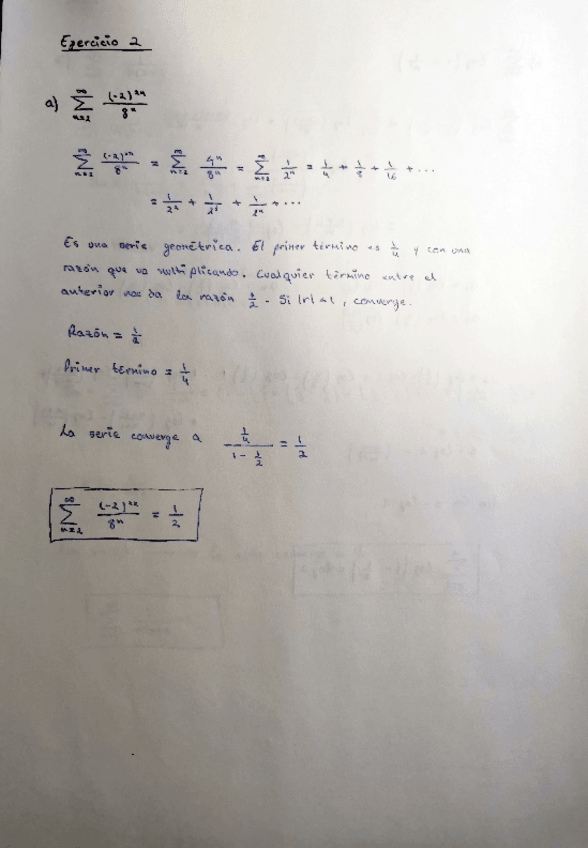 Ejercicio 2
a) ∑_{n=2}^{∞} (-2)^{2n} / 8^n
∑_{n=2}^{∞} (-2)^{2n} / 8^n = ∑_{n=2}^{∞} 4^n / 8^n = ∑_{n=2}^{∞} 1 / 2^n = 1/4 + 1/8 + 1/16 + ...
= 1/2^2 + 1/2^3 + 1/2^4 + ...
Es una serie geométrica. El primer término es 1/4 y con una
razón que va multiplicando. Cualquier término entre el
anterior nos da la razón 1/2. Si |r| < 1, converge.
Razón = 1/2
Primer término = 1/4
La serie converge a (1/4) / (1 - 1/2) = 1/2
∑_{n=2}^{∞} (-2)^{2n} / 8^n = 1/2